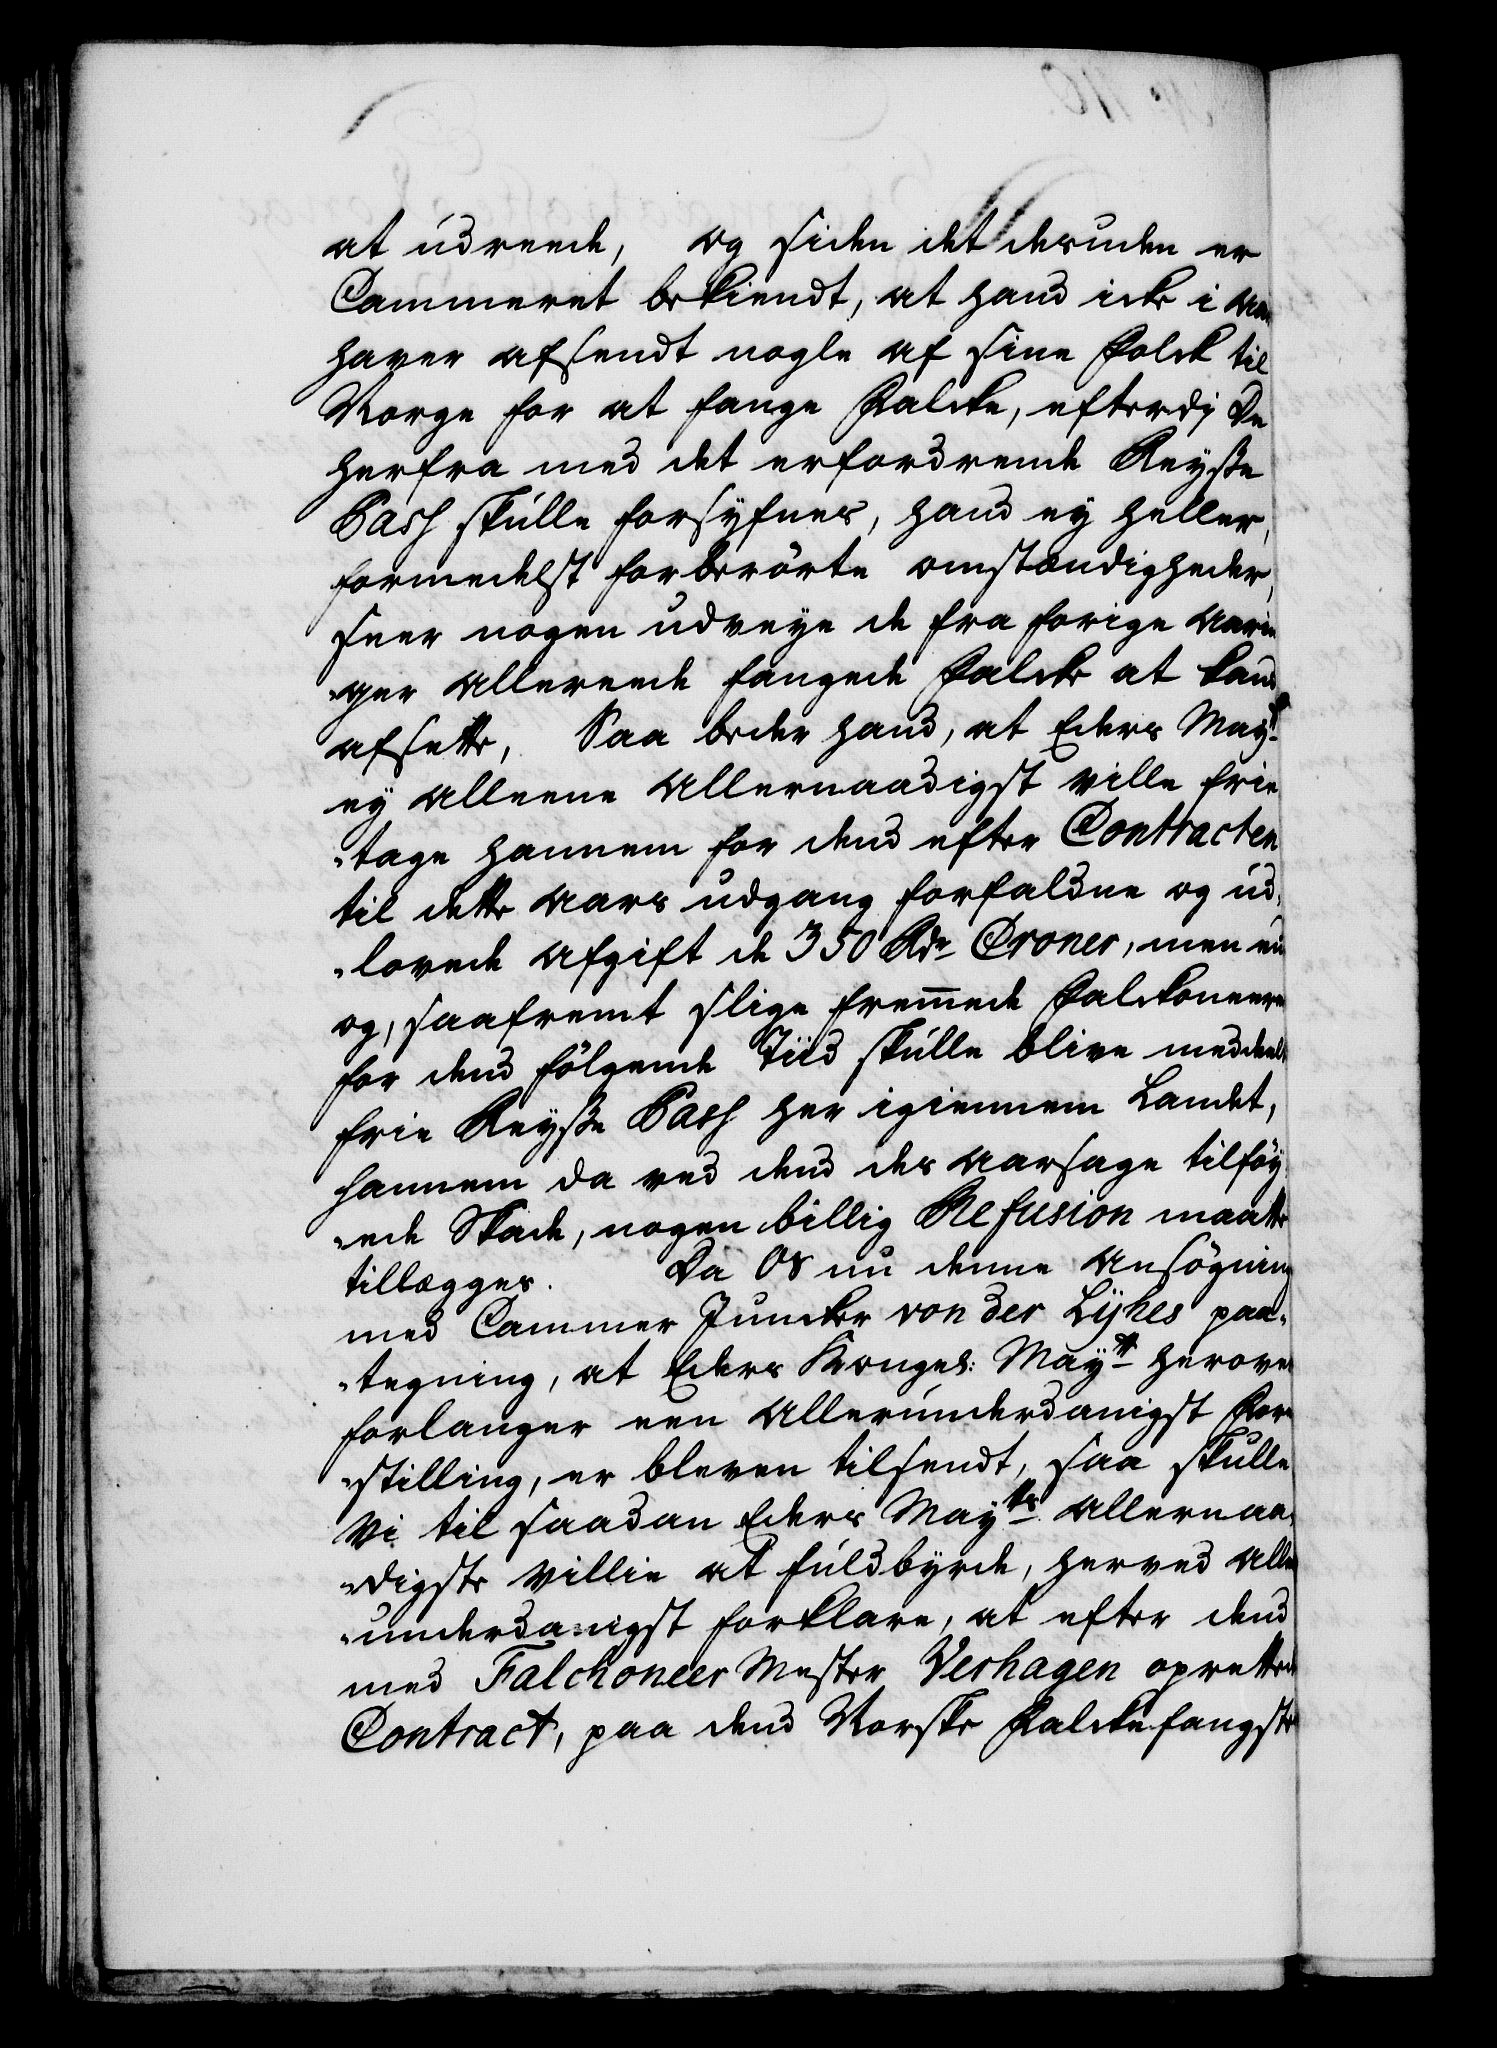 at udreede, og siden det desuden er
Cammeret bekiendt, at hand icke i Aar
haver afsendt nogle af sine Folck til
Norge for at fange Falcke, efterdj De
herfra med det erfordrende Reyße
Pass skulle forsÿfnes, hand ey heller,
formedelst forberörte omstændigheder,
seer nogen udveye de fra forige Aarin
-ger allereede fangede Falcke at kand
afsette, Saa beder hand, at Eders Mayt
ey alleene Allernaadigst ville frie
-tage hannem for dend efter Contracten
til dette Aars udgang forfaldne og ud-
-lovede afgift de 350 Rdr Croner, men end
og, saafremt slige fremede Falckoneere
for dend fölgende Tiid skulle blive meddeelt
frie Reyße Pass her igiennem Landet,
hannem da ved dend des aarsage tilföy
-ede Skade, nogen billig Refusion maatte
tillægges. Da Os nu denne Ansögning
med Cammer Juncker von der Lÿhes paa-
-tegning, at Eders Kongel: Maytt herover
forlanger een Allerunderdanigst Fore
-stilling, er bleven tilsendt, saa skulle
Vi til saadan Eders Maytts Allernaa-
-digste Villie at fuldbyrde, herved Aller
-underdanigst forklare, at efter dend
med Falckoneer Mester Verhagen oprettede
Contract, paa dend Norske Falckefangst